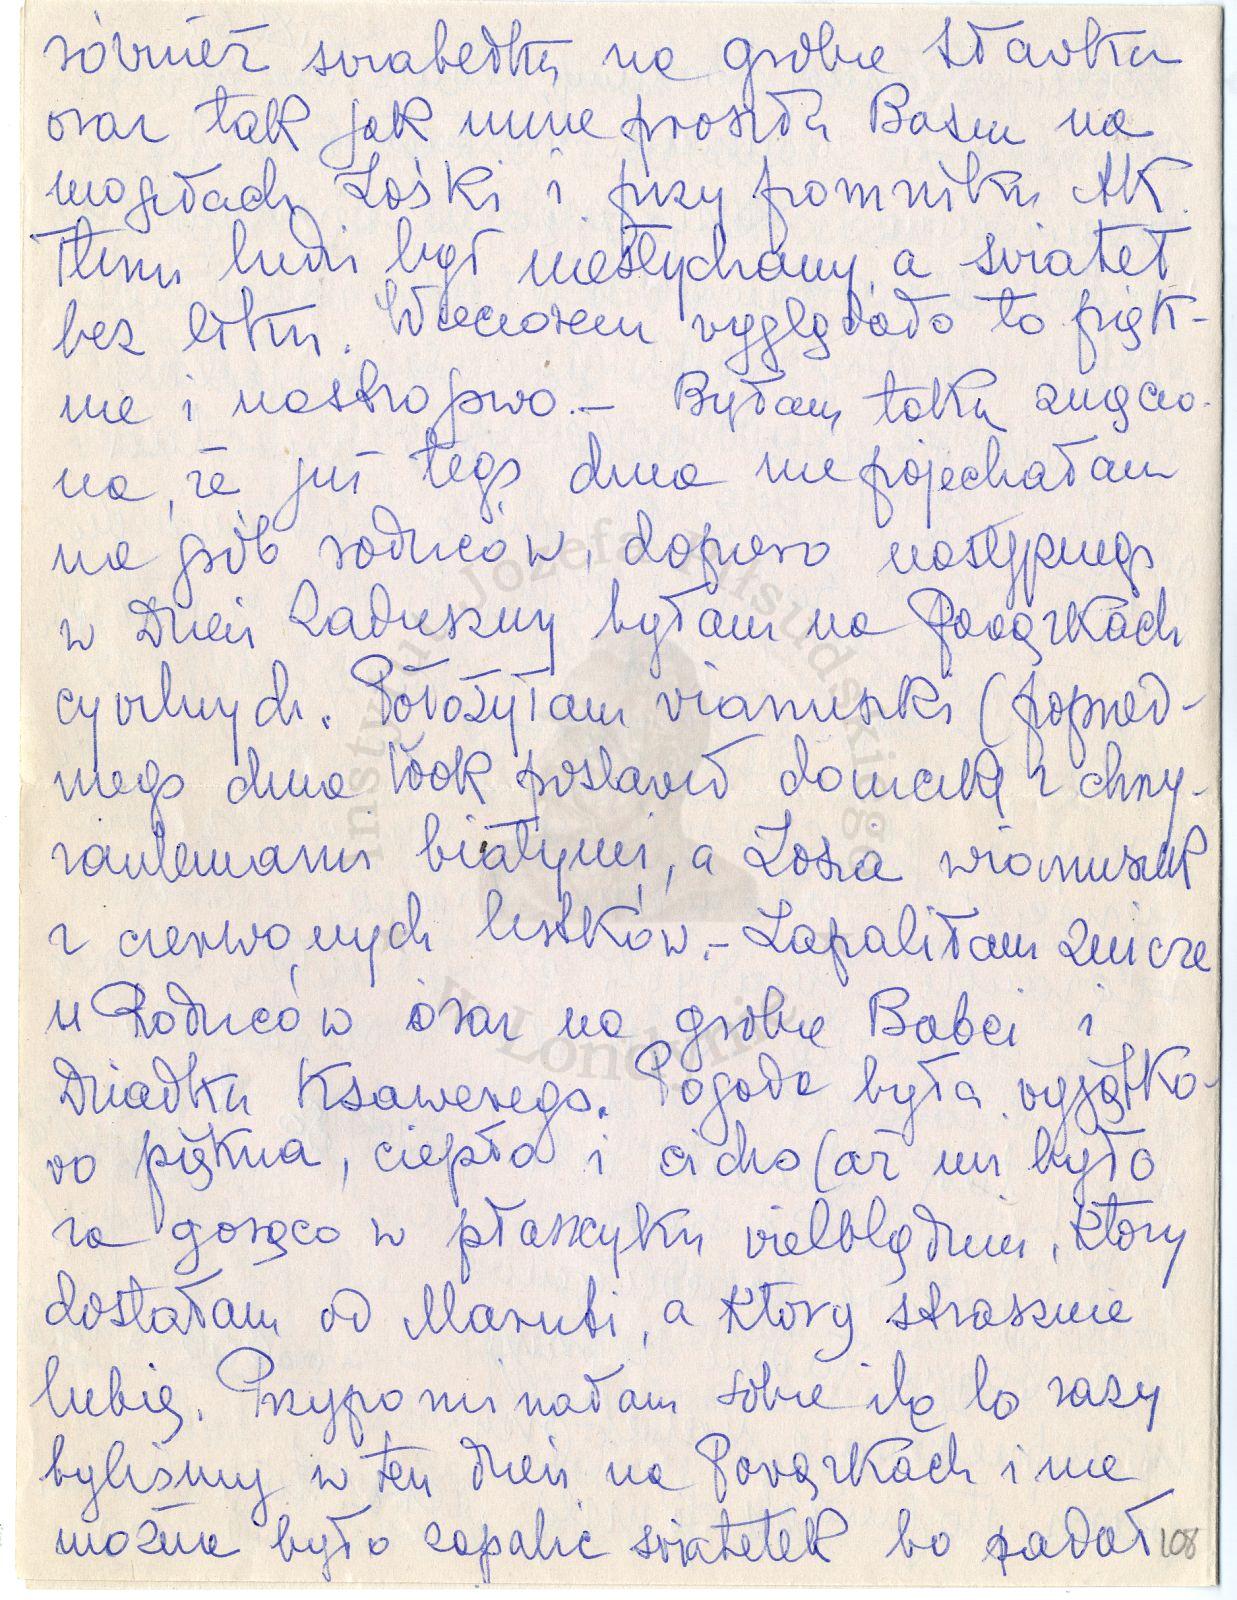 również świabełku na grobie Sławka
oraz tak jak mnie prosiła Basia na
mogiłach Zośki i przy pomniku AK.
Tłum ludzi był niesłychany, a świateł
bez liku. Wieczorem wyglądało to pięk-
nie i nastrojowo.– Byłam taka zmęczo-
na, że już tego dnia nie pojechałam
na grób rodziców, dopiero następnego
w Dzień Zaduszny byłam na Powązkach
cywilnych. Położyłam wianuszki (poprzed-
niego dnia Wok postawił doniczkę z chry-
zantemami białymi, a Zosia wianuszek
z czerwonych listków.– Zapaliłam znicze
u Rodziców oraz na grobie Babci i
Dziadka Ksawerego. Pogoda była wyjątko-
wo piękna, ciepło i cicho (aż mi było
za gorąco w płaszczyku wielbłądzim, który
dostałam od Maruti, a który strasznie
lubię. Przypominałam sobie ile to razy
byliśmy w ten dzień na Powązkach i nie
można było zapalić światełek bo padał
108
Instytut Józefa Piłsudskiego
w Londynie